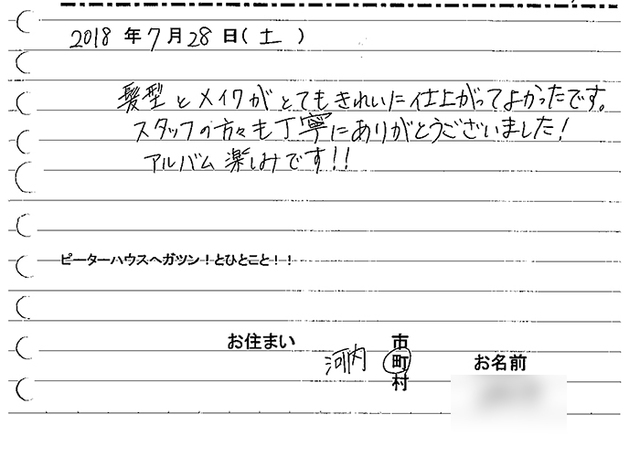 2018 年 7 月 28 日 ( 土 )
髪型とメイクがとてもきれいに仕上がってよかったです。
スタッフの方々も丁寧にありがとうございました!
アルバム楽しみです!!
ピーターハウスへガツン!とひとこと!!
お住まい 河内 市 町 村 お名前